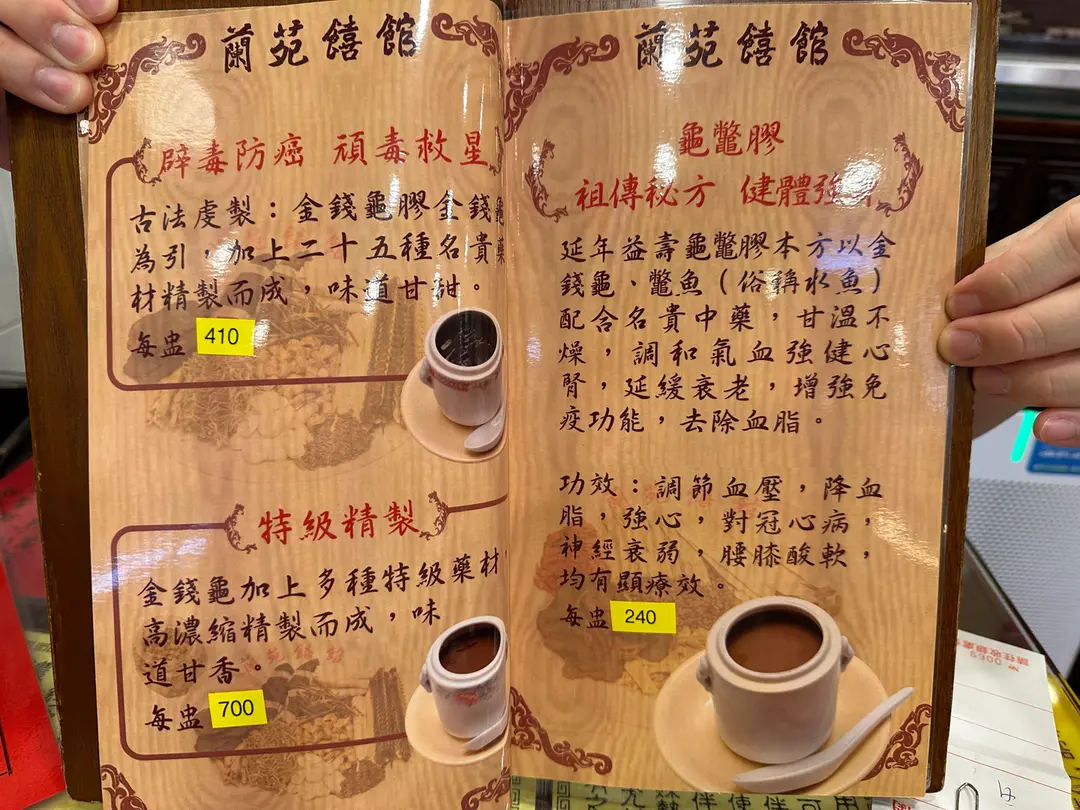 蘭苑饎館
辟毒防癌 頑毒救星
古法虔製：金錢龜膠金錢龜
為引，加上二十五種名貴藥
材精製而成，味道甘甜。
每盅 410
特級精製
金錢龜加上多種特級藥材，
高濃縮精製而成，味
道甘香。
每盅 700
蘭苑饎館
龜鼈膠
祖傳秘方 健體強
延年益壽龜鼈膠本方以金
錢龜、鼈魚（俗稱水魚）
配含名貴中藥，甘溫不
燥，調和氣血強健心
腎，延緩衰老，增強免
疫功能，去除血脂。
功效：調節血壓，降血
脂，強心，對冠心病，
神經衰弱，腰膝酸軟，
均有顯療效。
每盅 240
0069
請往收銀處
伴使伴可用